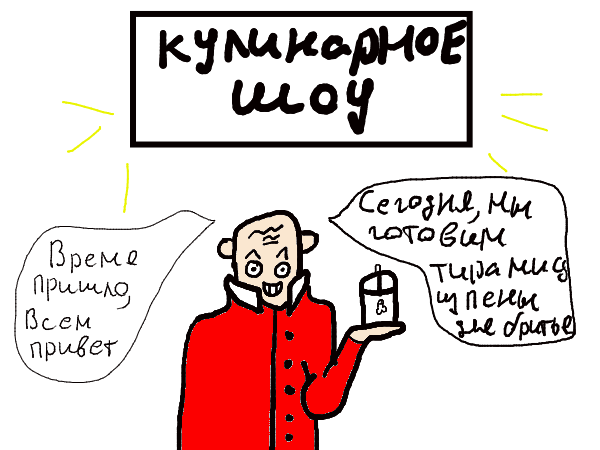 КУЛИНАРНОЕ
ШОУ
Време
пришло,
Всем
привет
Сегодня, мы
готовим
тирамису
из пены
для бритье